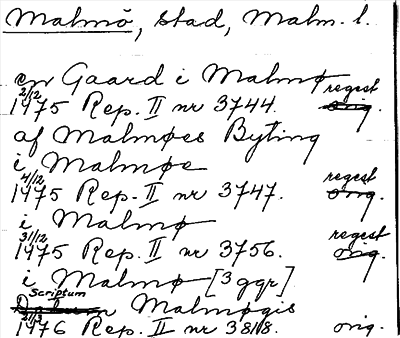 Malmö, stad, Malm. l.
en Gaard i Malmø
2/12 regest
1475 Rep. II nr 3744. orig.
af Malmøes Byting
i Malmøe
4/12 regest
1475 Rep. II nr 3747. orig.
i Malmø
31/12 regest
1475 Rep. II nr 3756. orig.
i Malmø [3 ggr]
Scriptum
Malmøgis
21/3
1476 Rep. II nr 3818. orig.